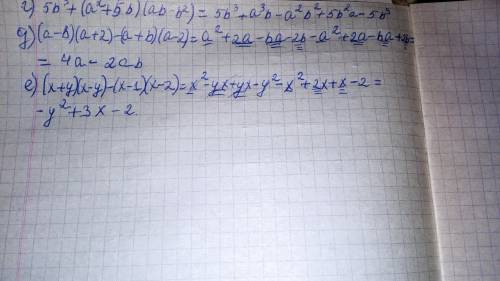 г) 5b³+(a²+5b)(ab-b²)=5b³+a³b-a²b²+5b²a-5b³
д) (a-b)(a+2)-(a+b)(a-2)=a²+2a-ba-2b-a²+2a-ba+2b=
= 4a-2ab
е) (x+y)(x-y)-(x-1)(x-2)=x²-yx+yx-y²-x²+2x+x-2=
-y²+3x-2.